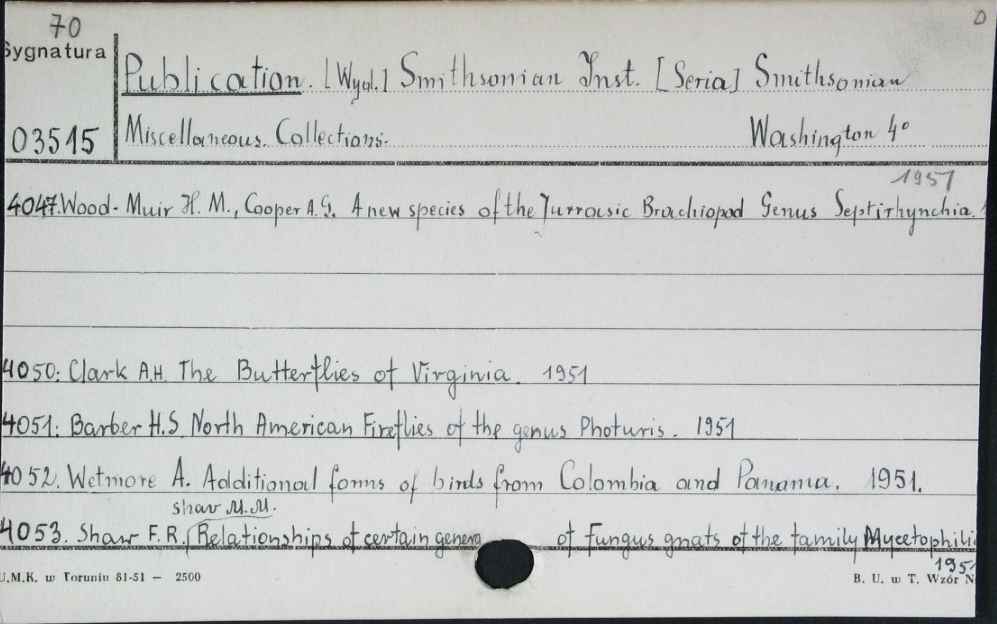 70
0
Sygnatura
Publication. [Wyd.] Smithsonian Inst. [Seria] Smithsonian
03515
Miscellaneous. Collections. Washington 4°
1951
4047. Wood-Muir H. M., Cooper A. G. A new species of the Jurrasic Brachiopod Genus Septirhynchia.
4050: Clark A.H. The Butterflies of Virginia. 1951
4051: Barber H.S. North American Fireflies of the genus Photuris. 1951
4052. Wetmore A. Additional forms of birds from Colombia and Panama. 1951.
shaw M.M.
4053. Shaw F.R. Relationships of certain genera of Fungus gnats of the family Mycetophili
1951
U.M.K. w Toruniu 81-51 — 2500 B. U. w T. Wzór N